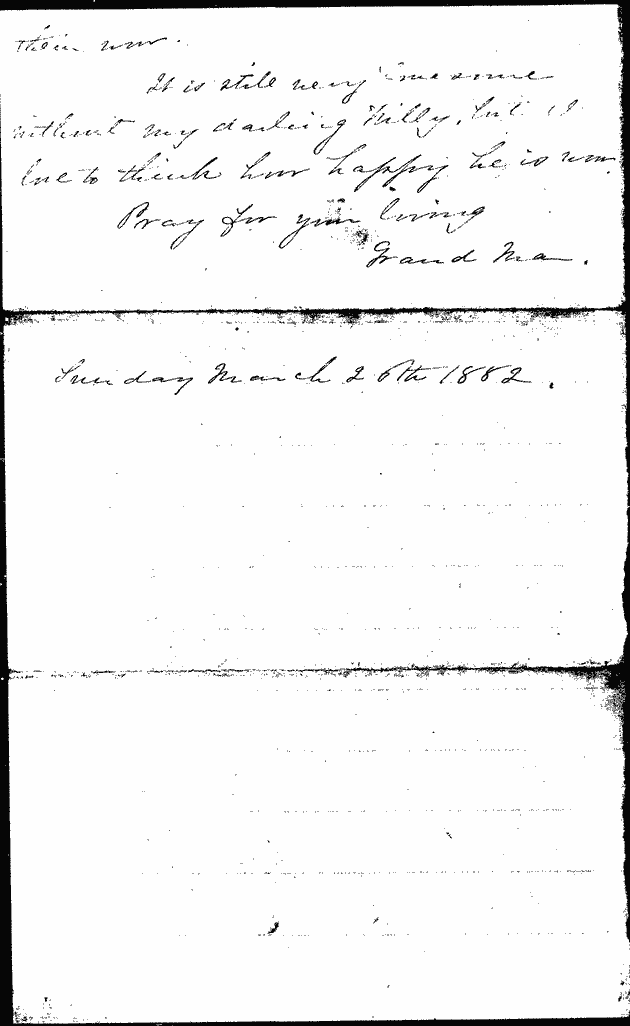 them now.
It is still very lonesome
without my darling Willy, but I
love to think how happy he is now.
Pray for your loving
Grand Ma.
Sunday March 26th 1882.